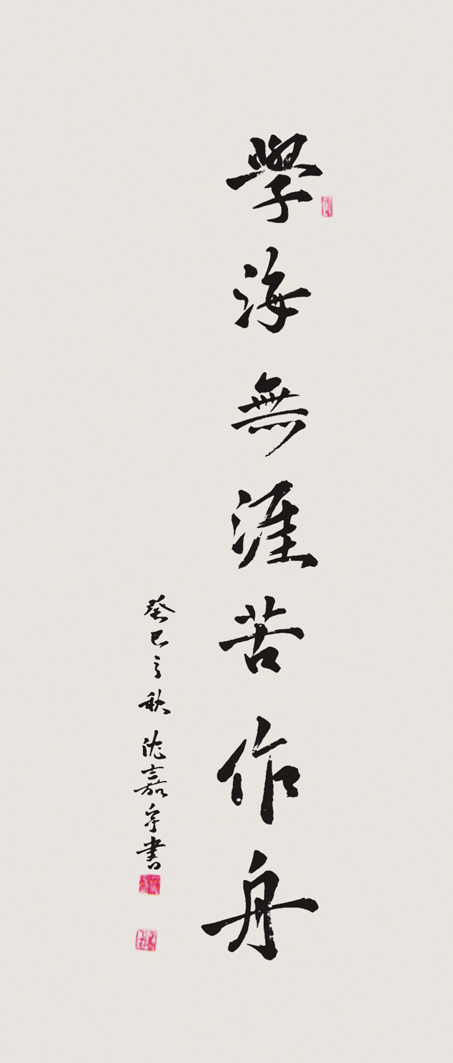 學海無涯苦作舟
癸巳之秋沈嘉宇書